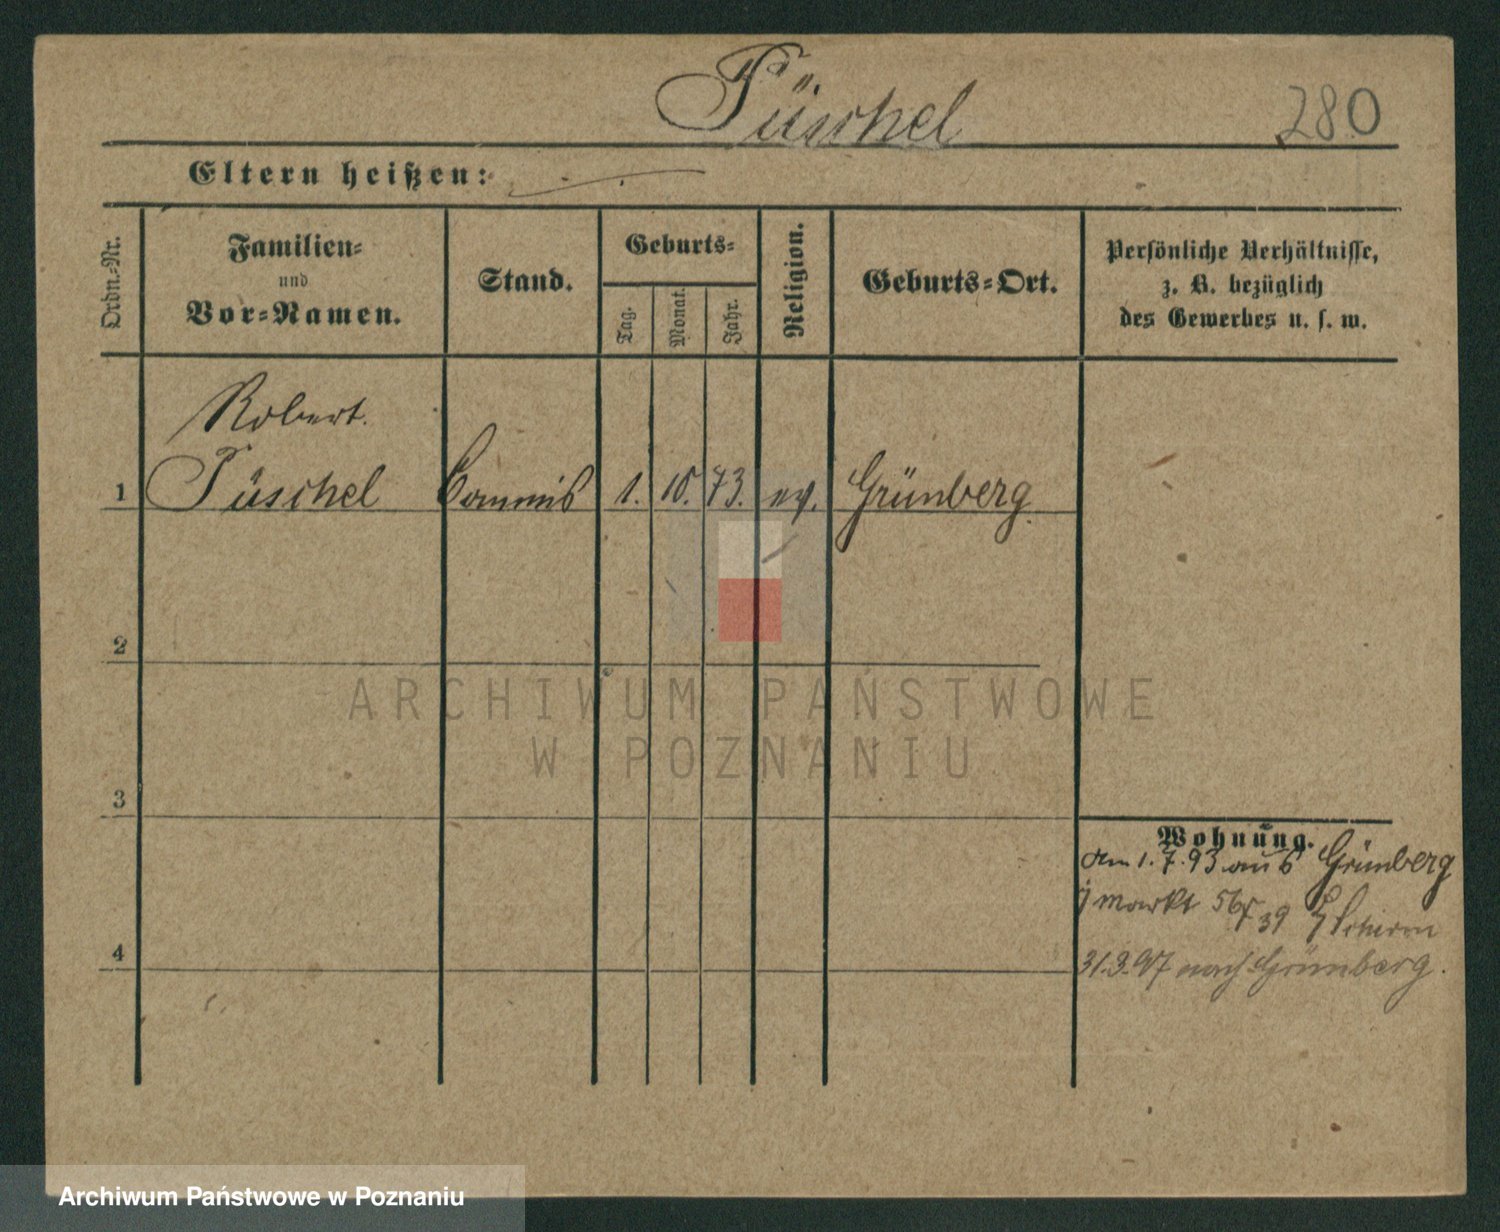 Püschel
280
Eltern heißen:
Ordn.-Nr.
Familien-
und
Vor-Namen.
Stand.
Geburts-
Tag.
Monat.
Jahr.
Religion.
Geburts-Ort.
Persönliche Verhältnisse,
z. B. bezüglich
des Gewerbes u. s. w.
Robert.
1 Püschel Commis 1. 10. 73. ev. Grünberg
2
3
4
Wohnung.
Am 1. 7. 93 aus Grünberg
markt 39
31.3.97 nach Grünberg.
ARCHIWUM PAŃSTWOWE
W POZNANIU
Archiwum Państwowe w Poznaniu